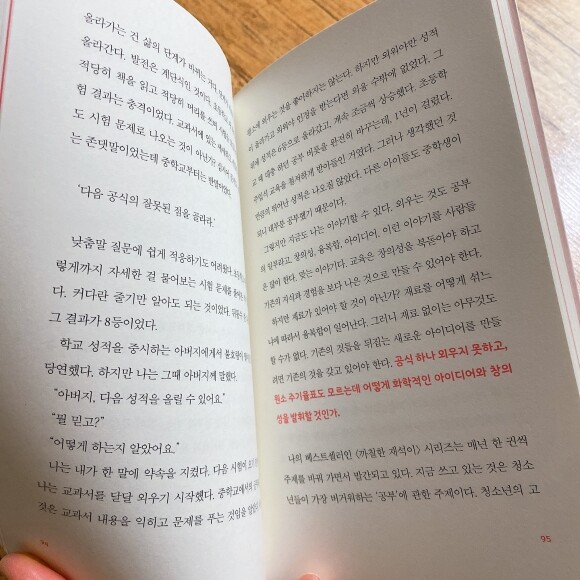 올라가는 건 삶의 단계가 바뀌는
올라간다. 발전은 계단식인 것이다.
적당히 책을 읽고 적당히 머리를 쓰며
험 결과는 충격이었다. 교과서에 있는
도 시험 문제로 나오는 것이 아닌가?
는 존댓말이었는데 중학교부터는 반말이었다.
'다음 공식의 잘못된 점을 골라라.'
낮춤말 질문에 쉽게 적응하기도 어려웠다.
렇게까지 자세한 걸 물어보는 시험 문제를
다. 커다란 줄기만 알아도 되는 것이었다.
그 결과가 8등이었다.
학교 성적을 중시하는 아버지에게서 불호령이
당연했다. 하지만 나는 그때 아버지께 말했다.
"아버지, 다음 성적을 올릴 수 있어요."
"뭘 믿고?"
"어떻게 하는지 알았어요."
나는 내가 한 말에 약속을 지켰다. 다음 시험이
나는 교과서를 달달 외우기 시작했다. 중학교에서의
것은 교과서 내용을 익히고 문제를 푸는 것임을
94
평소에 외우는 것을 좋아하지는 않는다. 하지만 외워야만 성적
이 올라가고 외워야 인정을 받는다면 외울 수밖에 없었다. 그
들에 성적은 6등으로 올라갔고, 계속 조금씩 상승했다. 초등학
교 때 대충 하던 공부 버릇을 완전히 바꾸는데, 1년이 걸렸다.
주입식 교육을 철저하게 받아들인 거였다. 그러나 생각했던 것
만큼의 뛰어난 성적은 나오질 않았다. 다른 아이들도 중학생이
되니 대부분 공부했기 때문이다.
그렇지만 지금도 나는 이야기할 수 있다. 외우는 것도 공부
의 일부라고. 창의성, 융복합, 아이디어. 이런 이야기를 사람들
은 많이 한다. 맞는 이야기다. 교육은 창의성을 북돋아야 하고
기존의 지식과 경험을 보다 나은 것으로 만들 수 있어야 한다.
하지만 재료가 있어야 할 것이 아닌가? 재료를 어떻게 섞느
냐에 따라서 융복합이 일어난다. 그러니 재료 없이는 아무것도
할 수가 없다. 기존의 것들을 뒤집는 새로운 아이디어를 만들
려면 기존의 것을 갖고 있어야 한다. 공식 하나 외우지 못하고,
원소 주기율표도 모르는데 어떻게 화학적인 아이디어와 창의
성을 발휘할 것인가.
나의 베스트셀러인 〈까칠한 재석이〉 시리즈는 매년 한 권씩
주제를 바꿔 가면서 발간되고 있다. 지금 쓰고 있는 것은 청소
년들이 가장 버거워하는 '공부'에 관한 주제이다. 청소년의 고
95